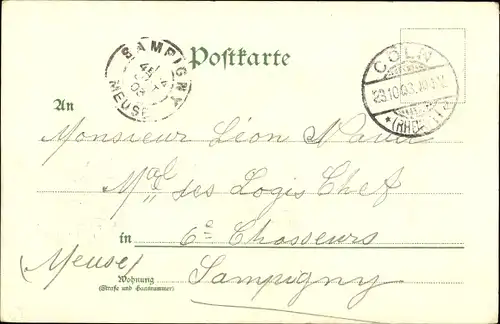 SAMPIGNY
MEUSE
Postkarte
CÖLN
*(RHEIN)
An
Monsieur Léon
Mal des Logis Chef
in 6e Chasseurs
(Meuse) Sampigny
Wohnung
(Straße und Hausnummer)